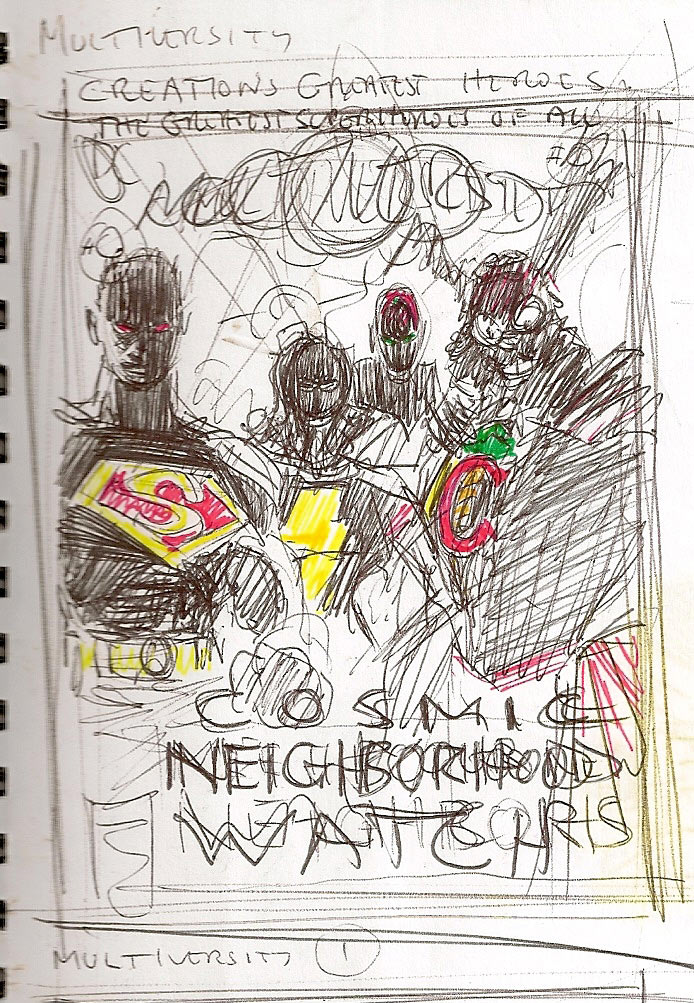 MULTIVERSITY
CREATION'S GREATEST HEROES
THE GREATEST SUPERHEROES OF ALL
DC
MULTIVERSITY
S
C
COSMIC
NEIGHBORHOOD
WATCH
MULTIVERSITY 1